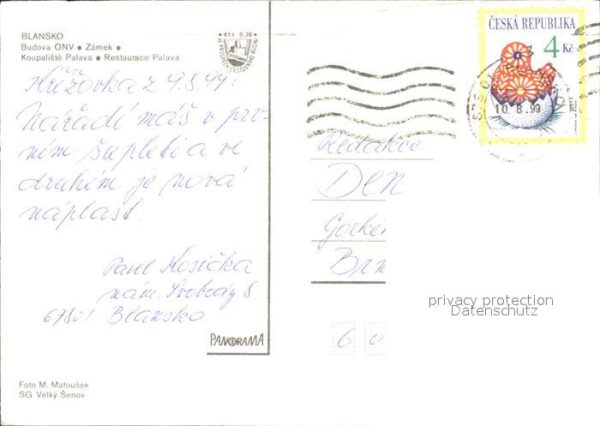 BLANSKO
Budova ONV • Zámek •
Koupaliště Palava • Restaurace Palava
Křížovka z 9.8.99:
Nářadí máš v prv-
ním šupleti a ve
druhém je nová
náplast.
Pavel Mosička
nám. Svobody 8
67801 Blansko
PANORAMA
Foto M. Matoušek
SG Velký Šenov
ČESKÁ REPUBLIKA
4 Kč
10.8.99
Redakce
DEN
Gorké
Brn
6 0
privacy protection
Datenschutz